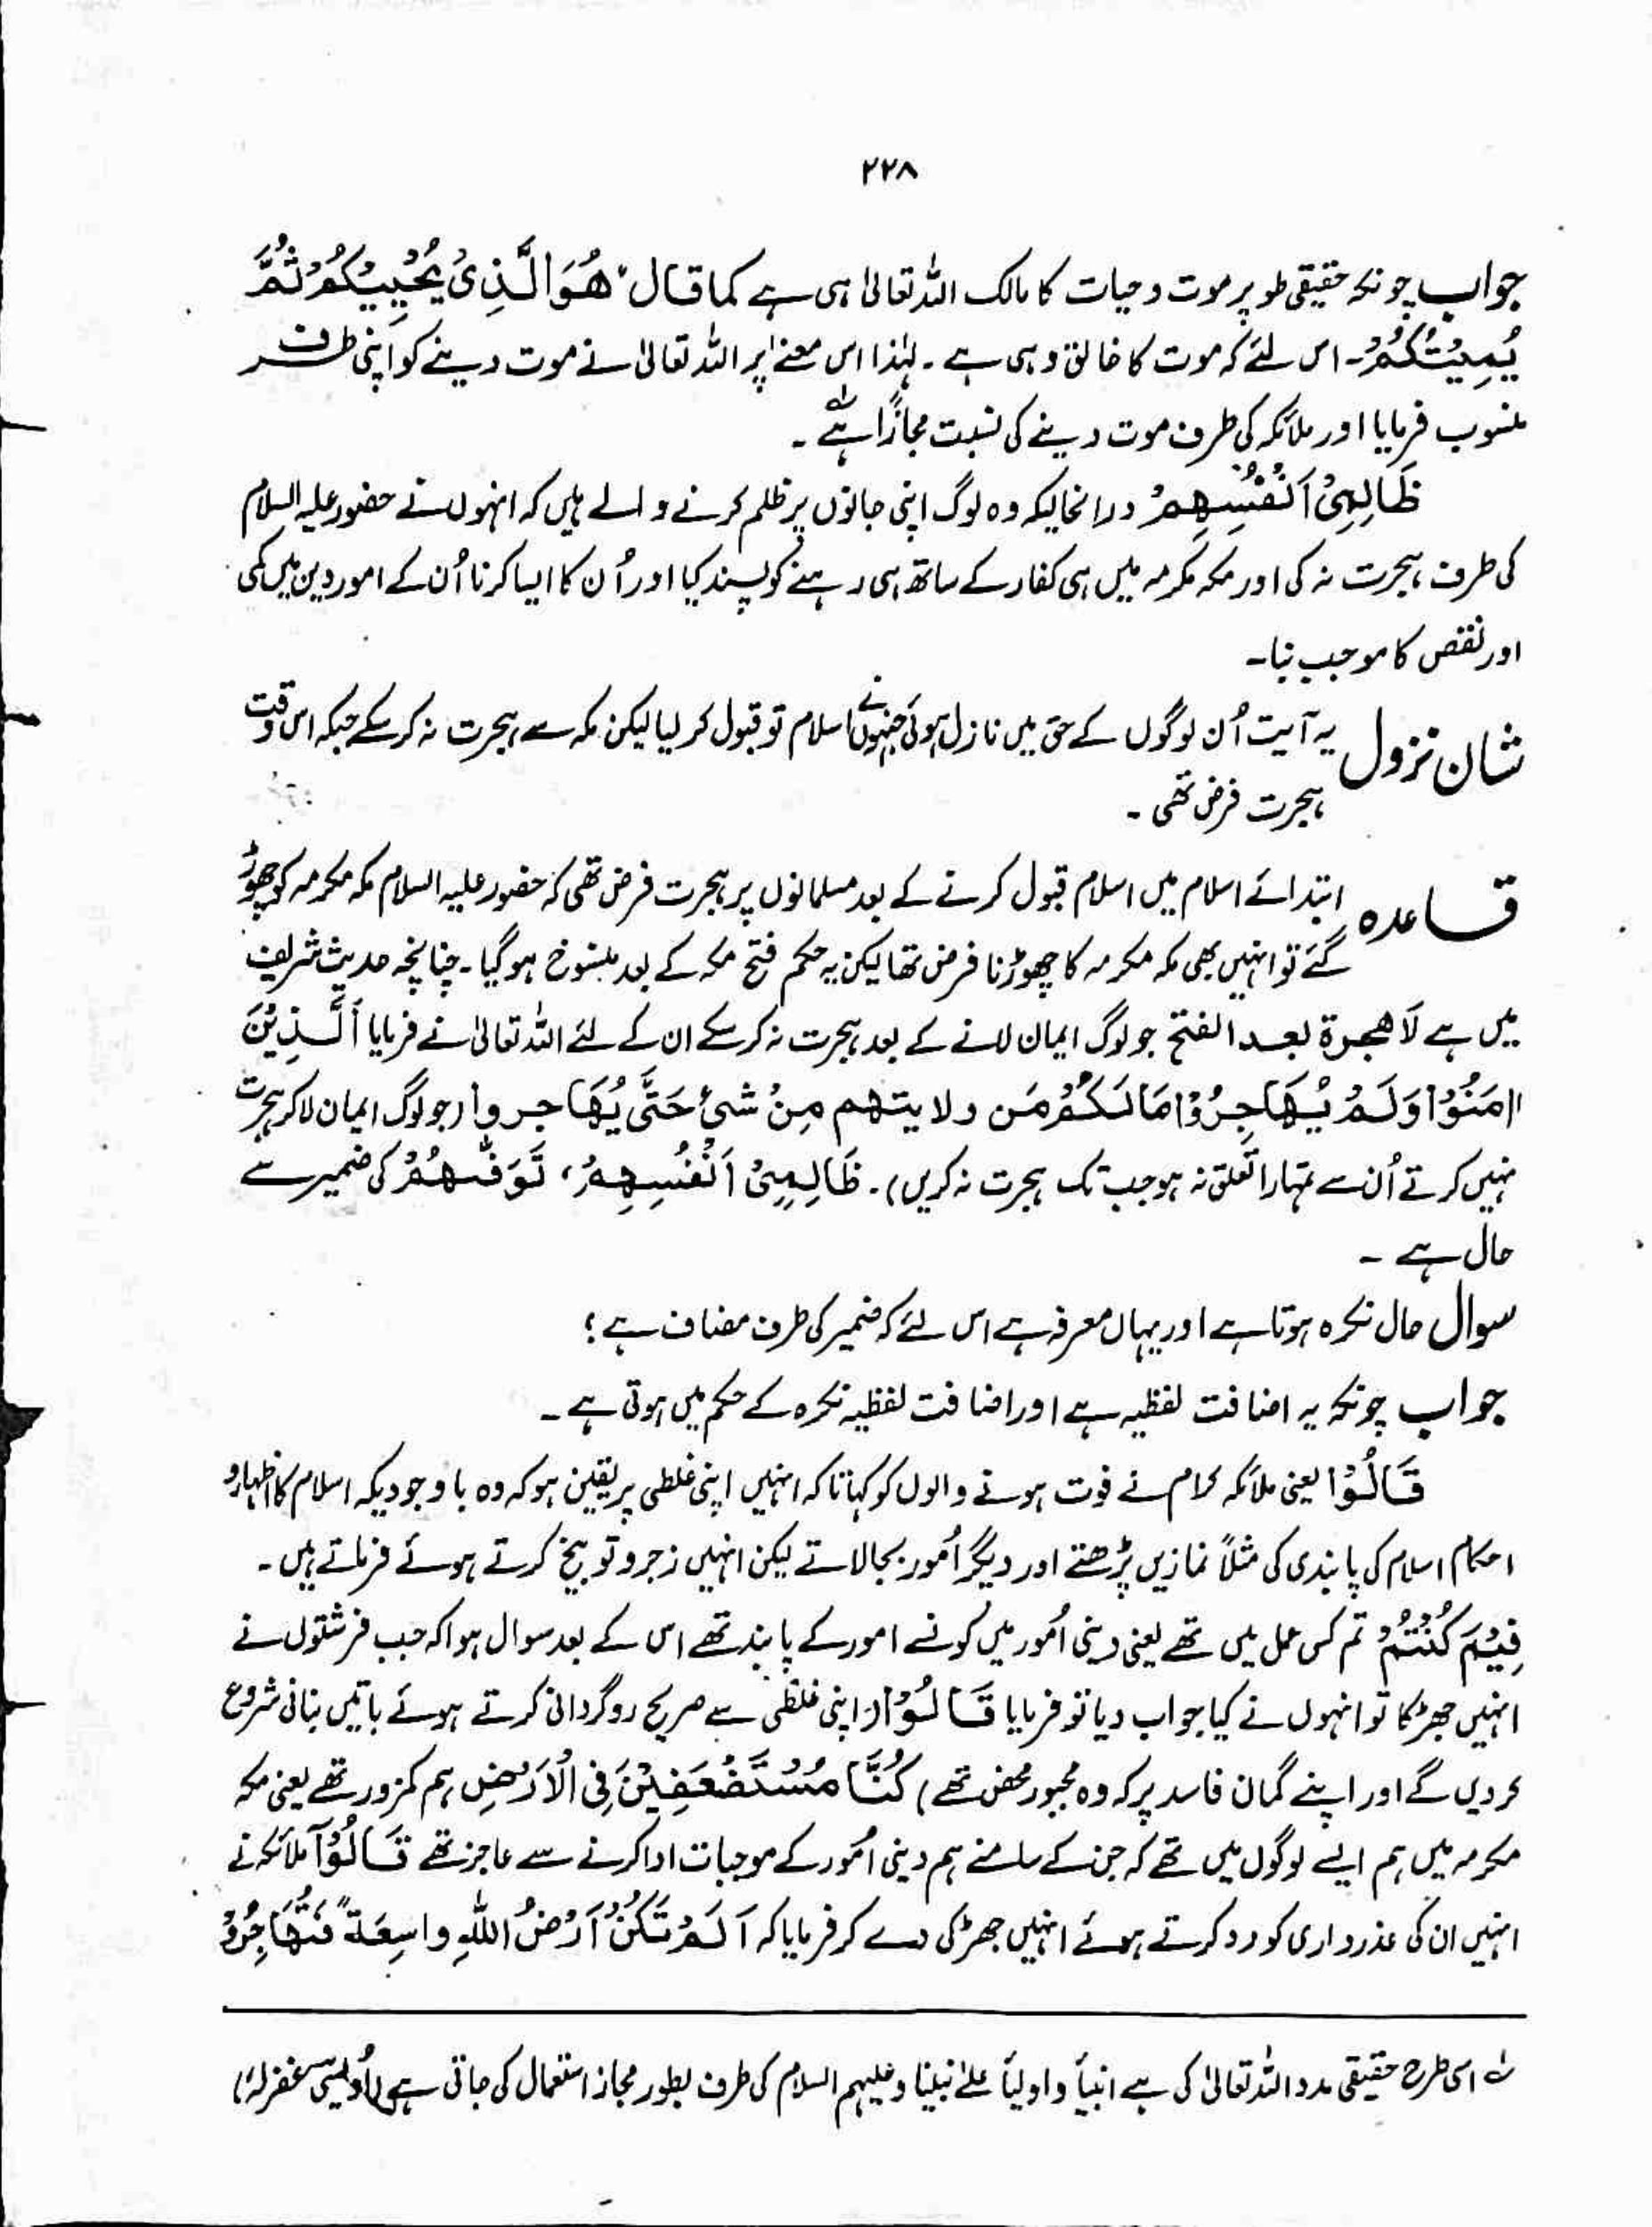 ۲۲۸
جواب چونکہ حقیقی طور پر موت و حیات کا مالک اللہ تعالیٰ ہی ہے کما قال ھُوَ الَّذِیْ یُحْیِیْکُمْ ثُمَّ
یُمِیْتُکُمْ۔ اس لئے کہ موت کا خالق وہی ہے۔ لہٰذا اس معنے پر اللہ تعالیٰ نے موت دینے کو اپنی طرف
منسوب فرمایا اور ملائکہ کی طرف موت دینے کی نسبت مجازاً ہے ؎۔
ظَالِمِیْ اَنْفُسِھِمْ درانحالیکہ وہ لوگ اپنی جانوں پر ظلم کرنے والے ہیں کہ انہوں نے حضور علیہ السلام
کی طرف ہجرت نہ کی اور مکہ مکرمہ میں ہی کفار کے ساتھ ہی رہنے کو پسند کیا اور اُن کا ایسا کرنا اُن کے امور دین میں کمی
اور نقص کا موجب بنا۔
شان نزول یہ آیت اُن لوگوں کے حق میں نازل ہوئی جنہوں نے اسلام تو قبول کر لیا لیکن مکہ سے ہجرت نہ کر سکے جبکہ اس وقت
ہجرت فرض تھی۔
قاعدہ ابتدائے اسلام میں اسلام قبول کرنے کے بعد مسلمانوں پر ہجرت فرض تھی کہ حضور علیہ السلام مکہ مکرمہ کو چھوڑ
گئے تو انہیں بھی مکہ مکرمہ کا چھوڑنا فرض تھا لیکن یہ حکم فتح مکہ کے بعد منسوخ ہو گیا۔ چنانچہ حدیث شریف
میں ہے لَا ھجرۃ بعد الفتح جو لوگ ایمان لانے کے بعد ہجرت نہ کر سکے ان کے لئے اللہ تعالیٰ نے فرمایا اَلَّذِیْنَ
اٰمَنُوْا وَلَمْ یُھَاجِرُوْا مَا لَکُمْ مَن ولایتھم مِنْ شیٔ حَتّٰی یُھَاجروا (جو لوگ ایمان لا کر ہجرت
نہیں کرتے اُن سے تمہارا تعلق نہ ہو جب تک ہجرت نہ کریں)۔ ظَالِمِیْ اَنْفُسِھِمْ، تَوَفّٰھُمْ کی ضمیر سے
حال ہے۔
سوال حال نکرہ ہوتا ہے اور یہاں معرفہ ہے اس لئے کہ ضمیر کی طرف مضاف ہے؟
جواب چونکہ یہ اضافت لفظیہ ہے اور اضافت لفظیہ نکرہ کے حکم میں ہوتی ہے۔
قَالُوْا یعنی ملائکہ کرام نے فوت ہونے والوں کو کہا تاکہ انہیں اپنی غلطی پر یقین ہو کہ وہ باوجودیکہ اسلام کا اظہار و
احکام اسلام کی پابندی کی مثلاً نمازیں پڑھتے اور دیگر اُمور بجا لاتے لیکن انہیں زجر و توبیخ کرتے ہوئے فرماتے ہیں۔
فِیْمَ کُنْتُمْ تم کس عمل میں تھے یعنی دینی اُمور میں کونسے امور کے پابند تھے اس کے بعد سوال ہوا کہ جب فرشتوں نے
انہیں جھڑکا تو انہوں نے کیا جواب دیا تو فرمایا قَالُوْا (اپنی غلطی سے صریح روگردانی کرتے ہوئے باتیں بنانی شروع
کر دیں گے اور اپنے گمان فاسد پر کہ وہ مجبور محض تھے) کُنَّا مُسْتَضْعَفِیْنَ فِی الْاَرْضِ ہم کمزور تھے یعنی مکہ
مکرمہ میں ہم ایسے لوگوں میں تھے کہ جن کے سامنے ہم دینی اُمور کے موجبات ادا کرنے سے عاجز تھے قَالُوْآ ملائکہ نے
انہیں ان کی عذرداری کو رد کرتے ہوئے انہیں جھڑکی دے کر فرمایا کہ اَلَمْ تَکُنْ اَرْضُ اللّٰہِ واسِعَۃً فَتُھَاجِرُوْ
؎ اسی طرح حقیقی مدد اللہ تعالیٰ کی ہے انبیأ و اولیأ علیٰ نبینا وعلیہم السلام کی طرف بطور مجاز استعمال کی جاتی ہے (اُویسی غفرلہٗ)